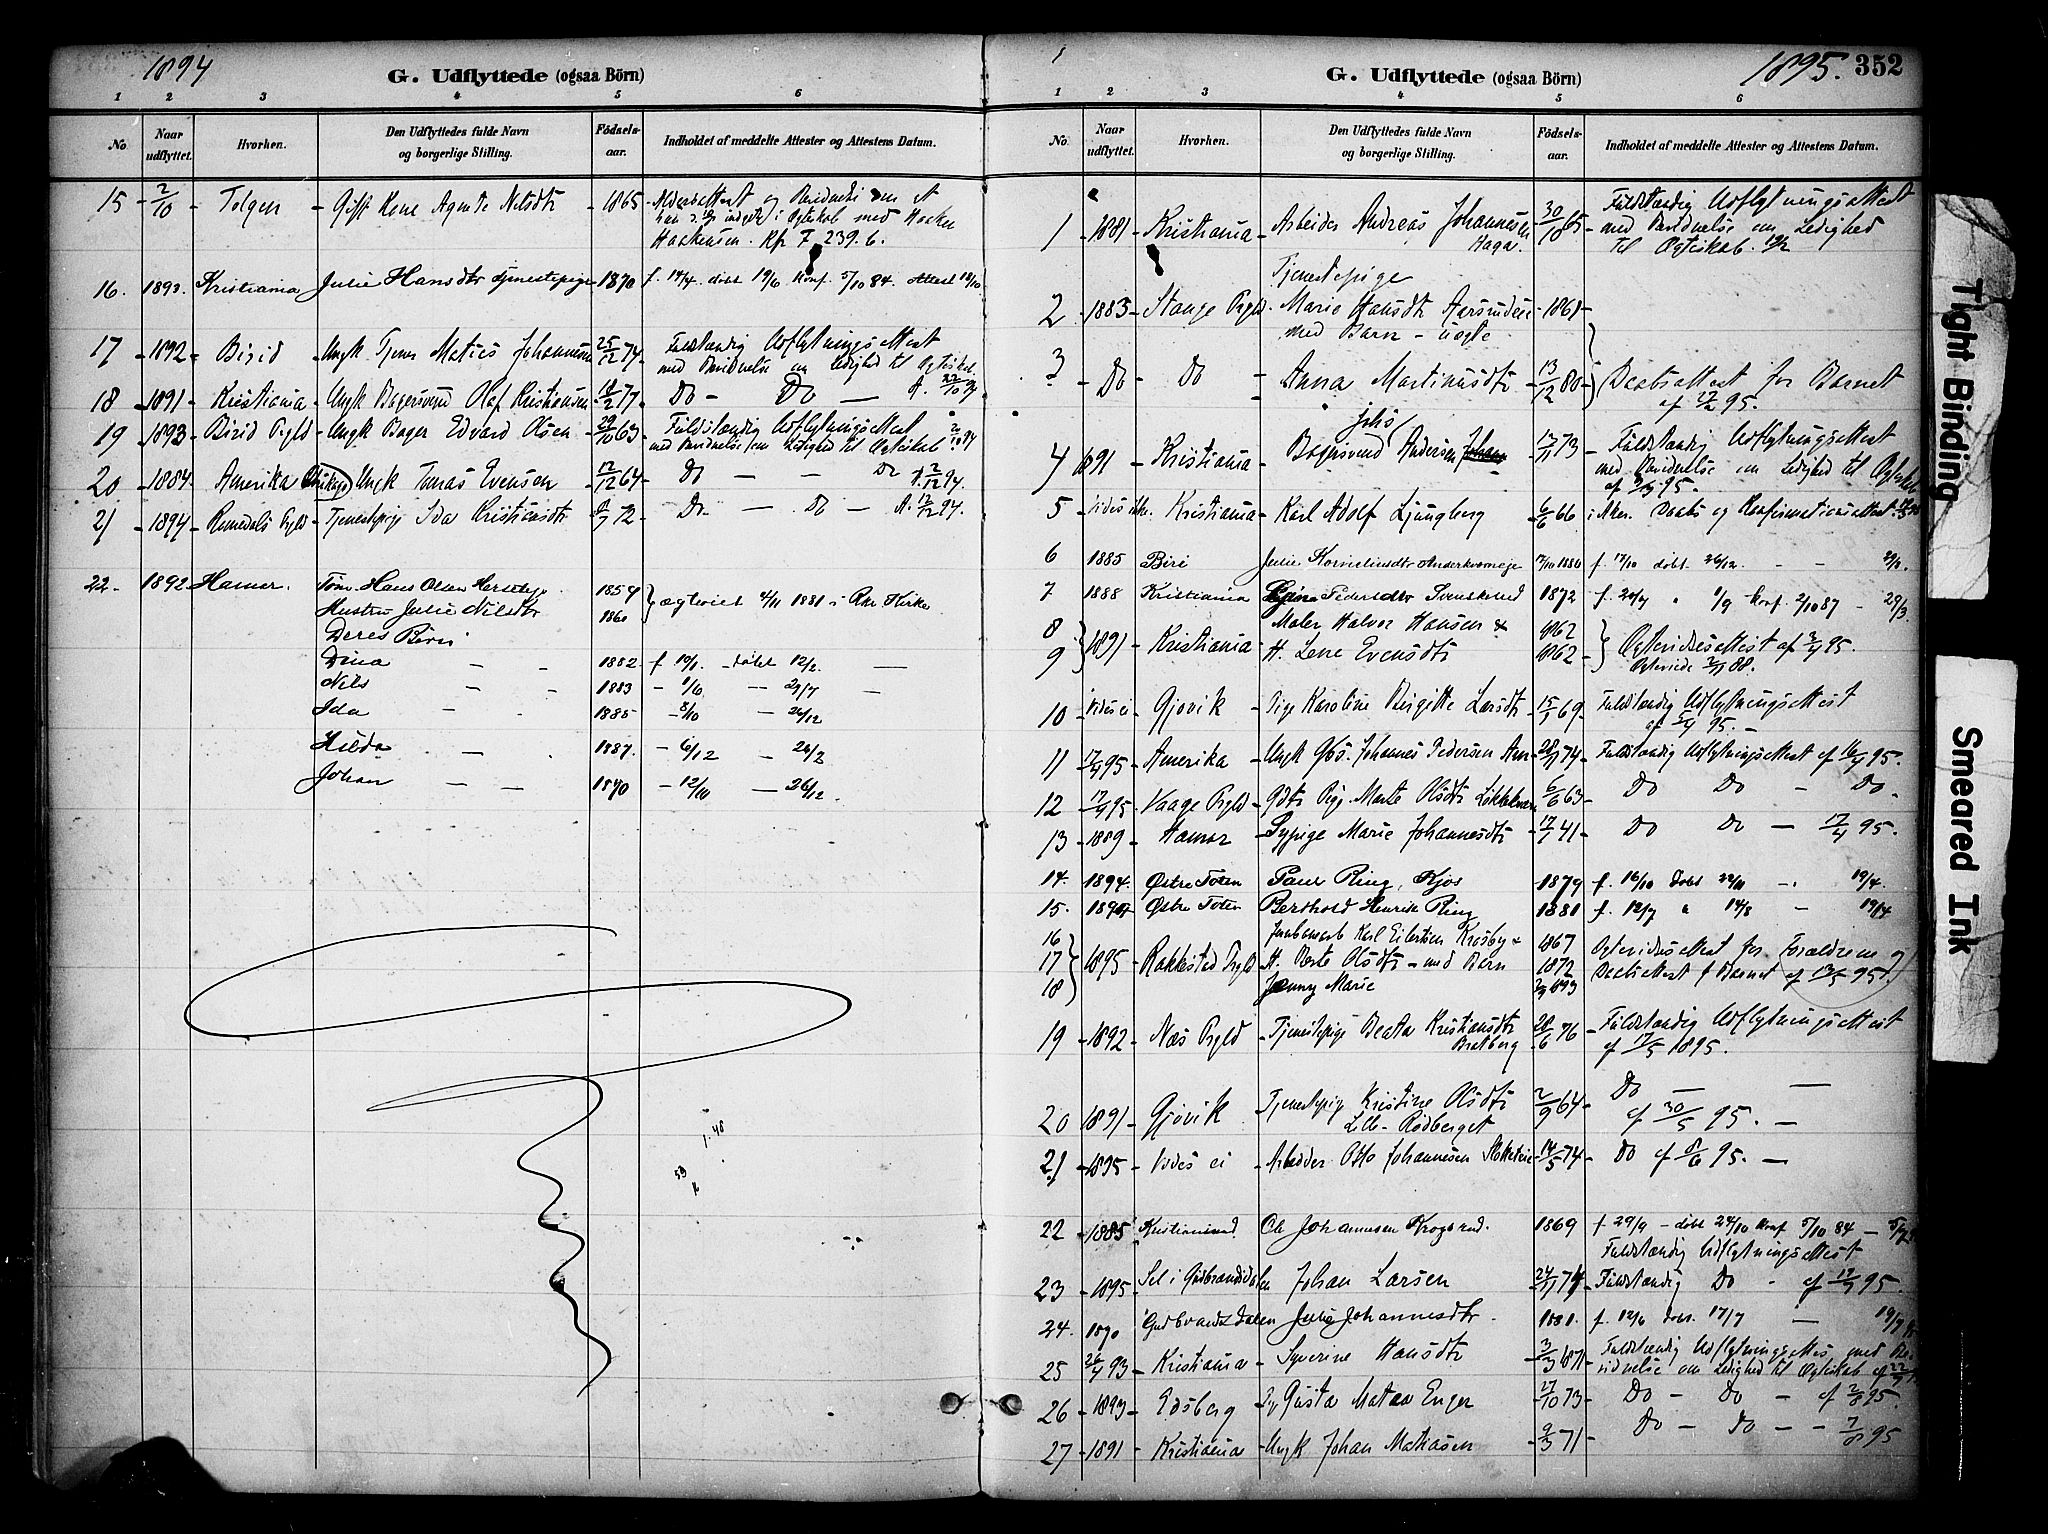 1894
G. Udflyttede (ogsaa Börn)
1 2 3 4 5 6
No. Naar udflyttet. Hvorhen. Den Udflyttedes fulde Navn og borgerlige Stilling. Födsels-aar. Indholdet af meddelte Attester og Attestens Datum.
15 2/10 Tolgen Gift Kone Agnete Nilsdtr 1865 Aldersattest og
Haakensen. Kfr F 239.6.
16. 1893. Kristiania Julie Hansdtr tjenestepige 1870 f. 14/4 döbt 19/6 Konf. 5/10 84. Attest 18/10
17 1892 Birid Ungk Tjener Matias Johannesen 25/12 74 Fuldstændig Udflytningsattest
med Bevidnelse om Ledighed til Ægteskab.
18 1891 Kristiania Ungk Bagersvend Olaf Kristiansen 18/2 77 Do Do
19 1893 Birid Prgld Ungk Bager Edvard Olsen 29/10 63 Fuldstændig Udflytningsattest
med Bevidnelse om Ledighed til Ægteskab
20 1884 Amerika Chikago Ungk Tomas Evensen 12/12 64 Do Do 2/12 94.
21 1894 Romedals Prgld Tjenestepige Ida Kristiansdtr 9/7 72 Do Do 13/12 94.
22. 1892 Hamar. Töm. Hans Olsen 1854
Hustru Julie Nilsdtr 1860 ægteviet 4/11 1881 i Kirke
Deres Börn
Dina 1882 f 19/1. döbt 12/2
Nils 1883 1/6 29/7
Ida 1885 8/10 26/12
Hilda 1887. 6/12 26/2
Johan 1890 12/10 26/12
1.48
1895. 352
G. Udflyttede (ogsaa Börn)
1 2 3 4 5 6
No. Naar udflyttet. Hvorhen. Den Udflyttedes fulde Navn og borgerlige Stilling. Födsels-aar. Indholdet af meddelte Attester og Attestens Datum.
1 1891 Kristiania Arbeider Andreas Johannesen Haga. 30/10 65 Fuldstændig Udflytningsattest
med Bevidnelse om Ledighed
til Ægteskab.
Tjenestepige
2 1883 Stange Prgld. Marie Hansdtr 1861
med Barn - uægte
3 Do Do Anna Martinusdtr 13/12 80 Daabsattest for Barnet
af 17/2 95.
4 1891 Kristiania Bagersvend Andersen 13/11 73 Fuldstændig Udflytningsattest
med Bevidnelse om Ledighed til Ægteskab
5 Vides ikke. Kristiania Karl Adolf Ljungberg 6/6 66 i Aker. Daabs og Konfirmationsattest
6 1885 Biri Julie 17/10 1880 f. 17/10 döbt 26/12.
7 1888 Kristiania Pedersdtr 1872 f. 20/7 1/9 Konf. 2/10 87 29/3
8 Maler Halvor Hansen & 1862
9 1891 Kristiania H. Lene Evensdtr 1862 Ægtevielsesattest af 95.
10 Vides ei Gjøvik Pige Karoline Birgitte Larsdtr 15/1 69 Fuldstændig Udflytningsattest
af 95.
11 17/4 95 Amerika Ungk Gbs. Johannes Pedersen 28/1 74 Fuldstændig Udflytningsattest af 16/4 95.
12 17/4 95 Vaage Prgld Gdtr Pige Marte Olsdtr 6/6 63 Do Do Do
13 1889 Hamar Sypige Marie Johannesdtr 17/1 41 Do Do 17/4 95.
14. 1894. Østre Toten Paul Ring, Kjos 1879 f. 16/10 döbt 22/11 19/4.
15. 1894 Østre Toten Berthold Henrik Ring 1881 f. 12/7 14/8 19/4
16 Karl Eilertsen Krosby & 1867 Ægtevielsesattest for Forældrene og
17 1895 Rakkestad Prgld H. Olsdtr med Barn 1872 Daabsattest f Barnet af 13/5 95.
18 Jenny Marie 1893
19 1892 Næs Prgld Tjenestepige Beata Kristiansdtr Bratberg 28/6 76 Fuldstændig Udflytningsattest
af 17/5 1895.
20 1891 Gjøvik Tjenestepige Kristine Olsdtr 2/9 64 Do
Lille-Rödberget af 30/5 95.
21 1895 Vides ei Arbeider Otto Johannesen 14/5 74 Do af 8/6 95.
22 1885 Kristiansund Johannesen Krogsrud. 1869 f 29/9 döbt 24/10 Konf 5/10 84
Fuldstændig Udflytningsattest
23 1895 Sel i Gudbrandsdalen Johan Larsen 24/11 74 Fuldstændig Do af 17/7 95.
24. 1890 Gudbrandsdalen Julie Johannesdtr. 1881. f. 12/6 döbt. 17/7 19/7
25 26/4 93 Kristiania Syverine Hansdtr 3/3 1871 Fuldstændig Udflytningsattest med Be-
vidnelse om Ledighed til Ægteskab af 22/7
26 1893 Edsberg Gusta Enger 27/10 73 Do Do af 2/8 95.
27 1891 Kristiania Ungk Johan Mathisen 9/3 71 Do Do 7/8 95
Tight Binding
Smeared Ink